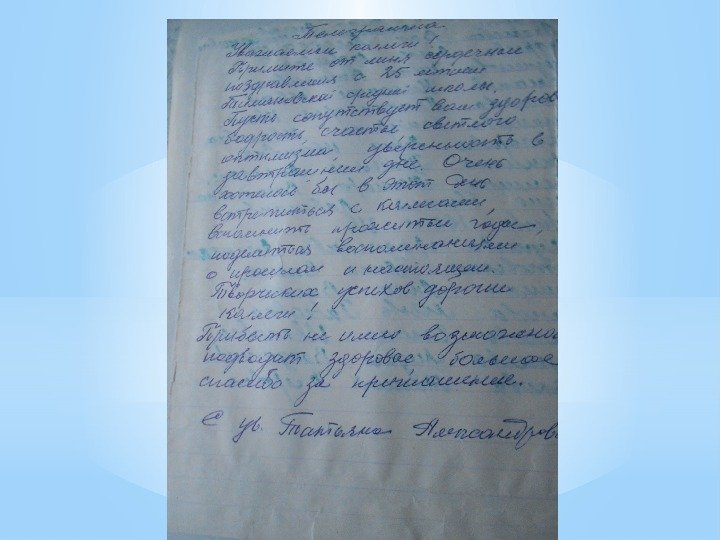 Телеграмма.
Уважаемые коллеги!
Примите от меня сердечные
поздравления с 25 летием
средней школы.
Пусть сопутствует вам здоров
бодрость, счастье светлого
оптимизма уверенность в
завтрашнем дне. Очень
хотелось бы в этот день
встретиться с вами,
вспомнить прожитые годы,
поделиться воспоминаниями
о прошлом и настоящем.
Творческих успехов дорогие
коллеги!
Прибыть не имею возможнос
подводит здоровье большое
спасибо за приглашение.
С ув. Татьяна Александров